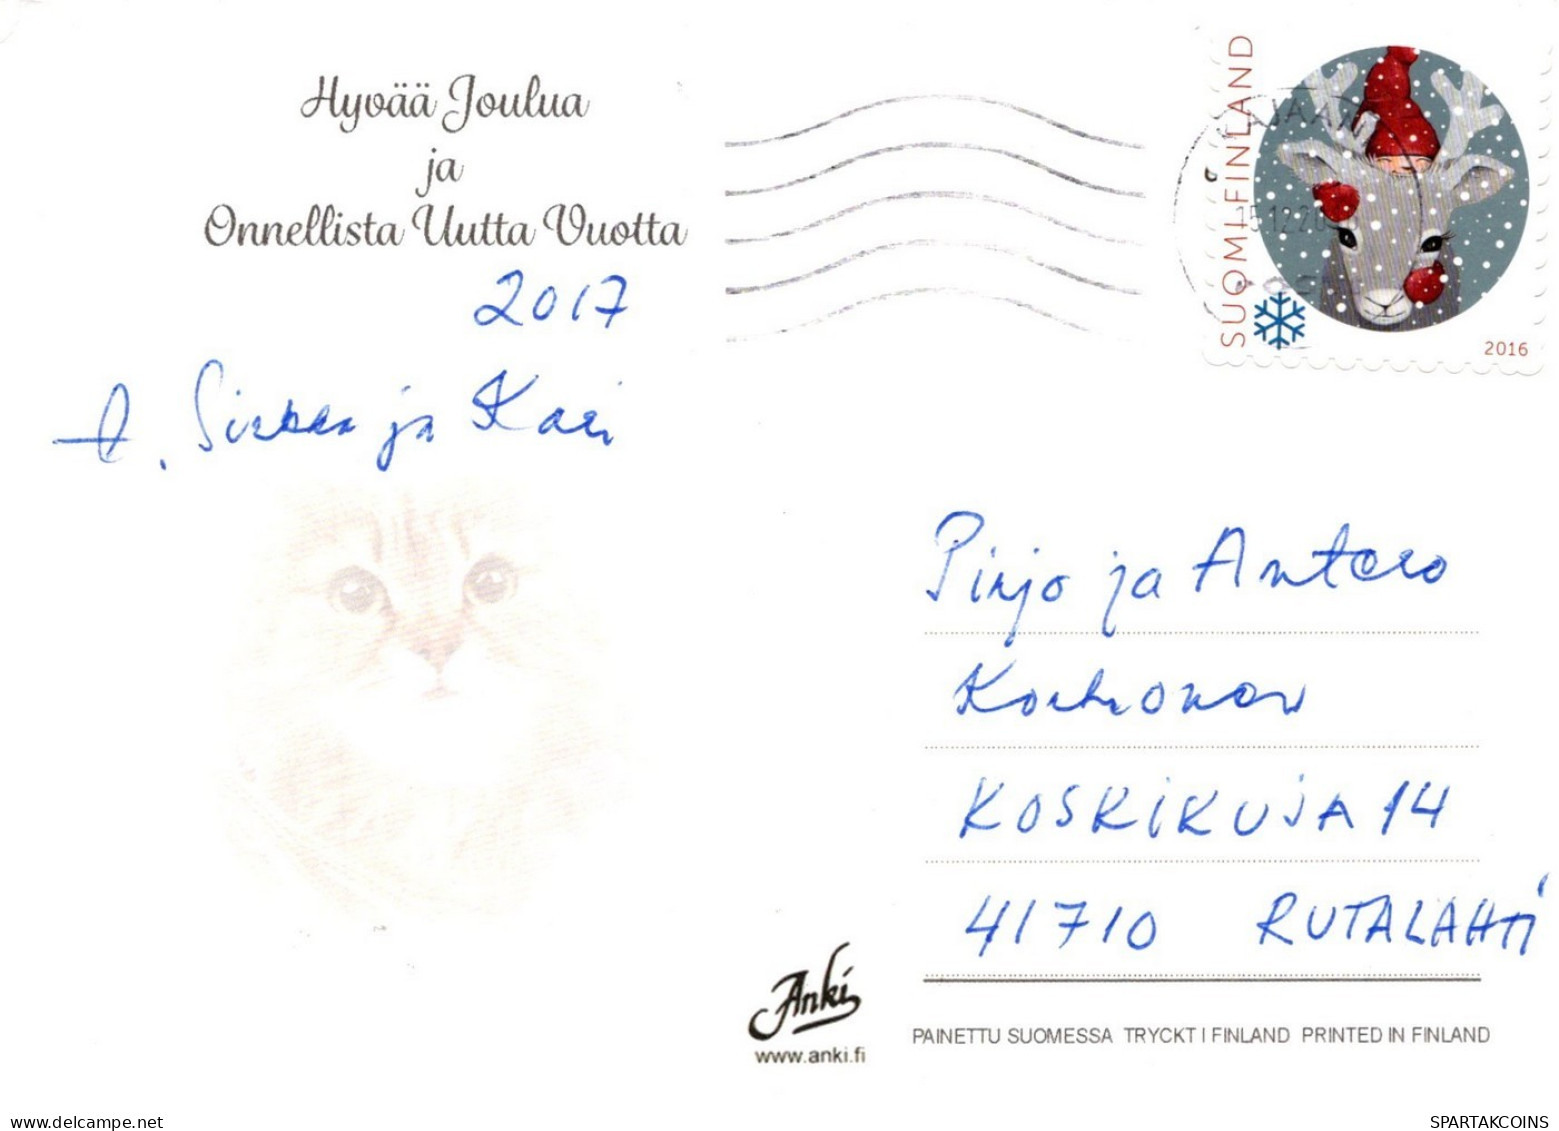 Hyvää Joulua
ja
Onnellista Uutta Vuotta
2017
t. Sirkka ja Kari
SUOMI FINLAND
15.12.20
2016
Pirjo ja Antero
Korhonen
KOSKIKUJA 14
41710 RUTALAHTI
Anki
www.anki.fi
PAINETTU SUOMESSA TRYCKT I FINLAND PRINTED IN FINLAND
SPARTAKCOINS